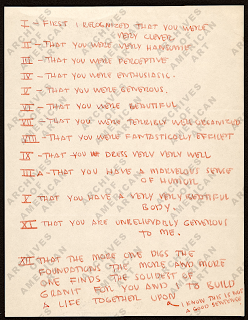 I - FIRST I RECOGNIZED THAT YOU WERE
VERY CLEVER
II - THAT YOU WERE VERY HANDSOME
III - THAT YOU WERE PERCEPTIVE
IV - THAT YOU WERE ENTHUSIASTIC.
V - THAT YOU WERE GENEROUS.
VI - THAT YOU WERE BEAUTIFUL
VII - THAT YOU WERE TERRIBLY WELL ORGANIZED
VIII - THAT YOU WERE FANTASTICALLY EFFICIENT
IX - THAT YOU DRESS VERY VERY WELL
IX A - THAT YOU HAVE A MARVELOUS SENSE
OF HUMOR
X THAT YOU HAVE A VERY VERY BEAUTIFUL
BODY.
XI THAT YOU ARE UNBELIEVABLY GENEROUS
TO ME.
XII THAT THE MORE ONE DIGS THE
FOUNDATIONS THE MORE AND MORE
ONE FINDS THE SOLIDEST OF
GRANIT FOR YOU AND TO BUILD
A LIFE TOGETHER UPON
I KNOW THIS IS NOT
A GOOD SENTENCE
ARCHIVES OF AMERICAN ART